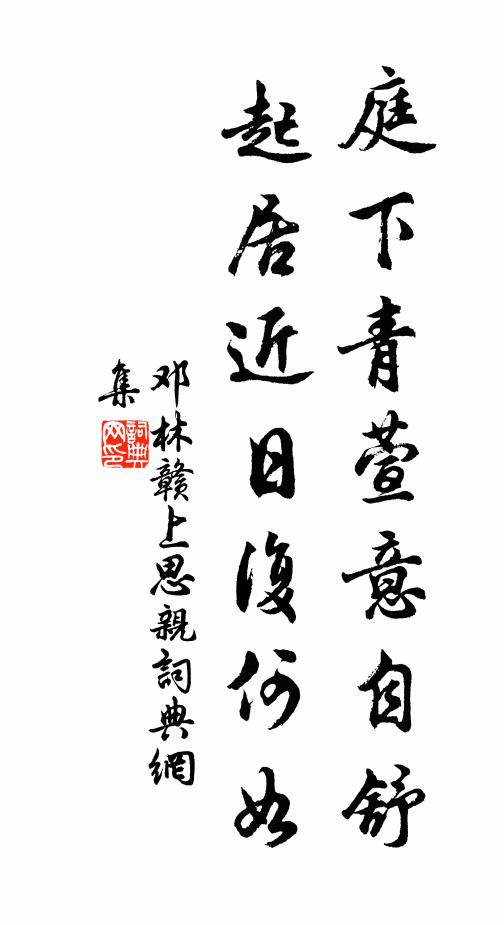 庭下青萱意自舒
起居近日復何如
邓林贛上思親詞典網
集
詞典
网印